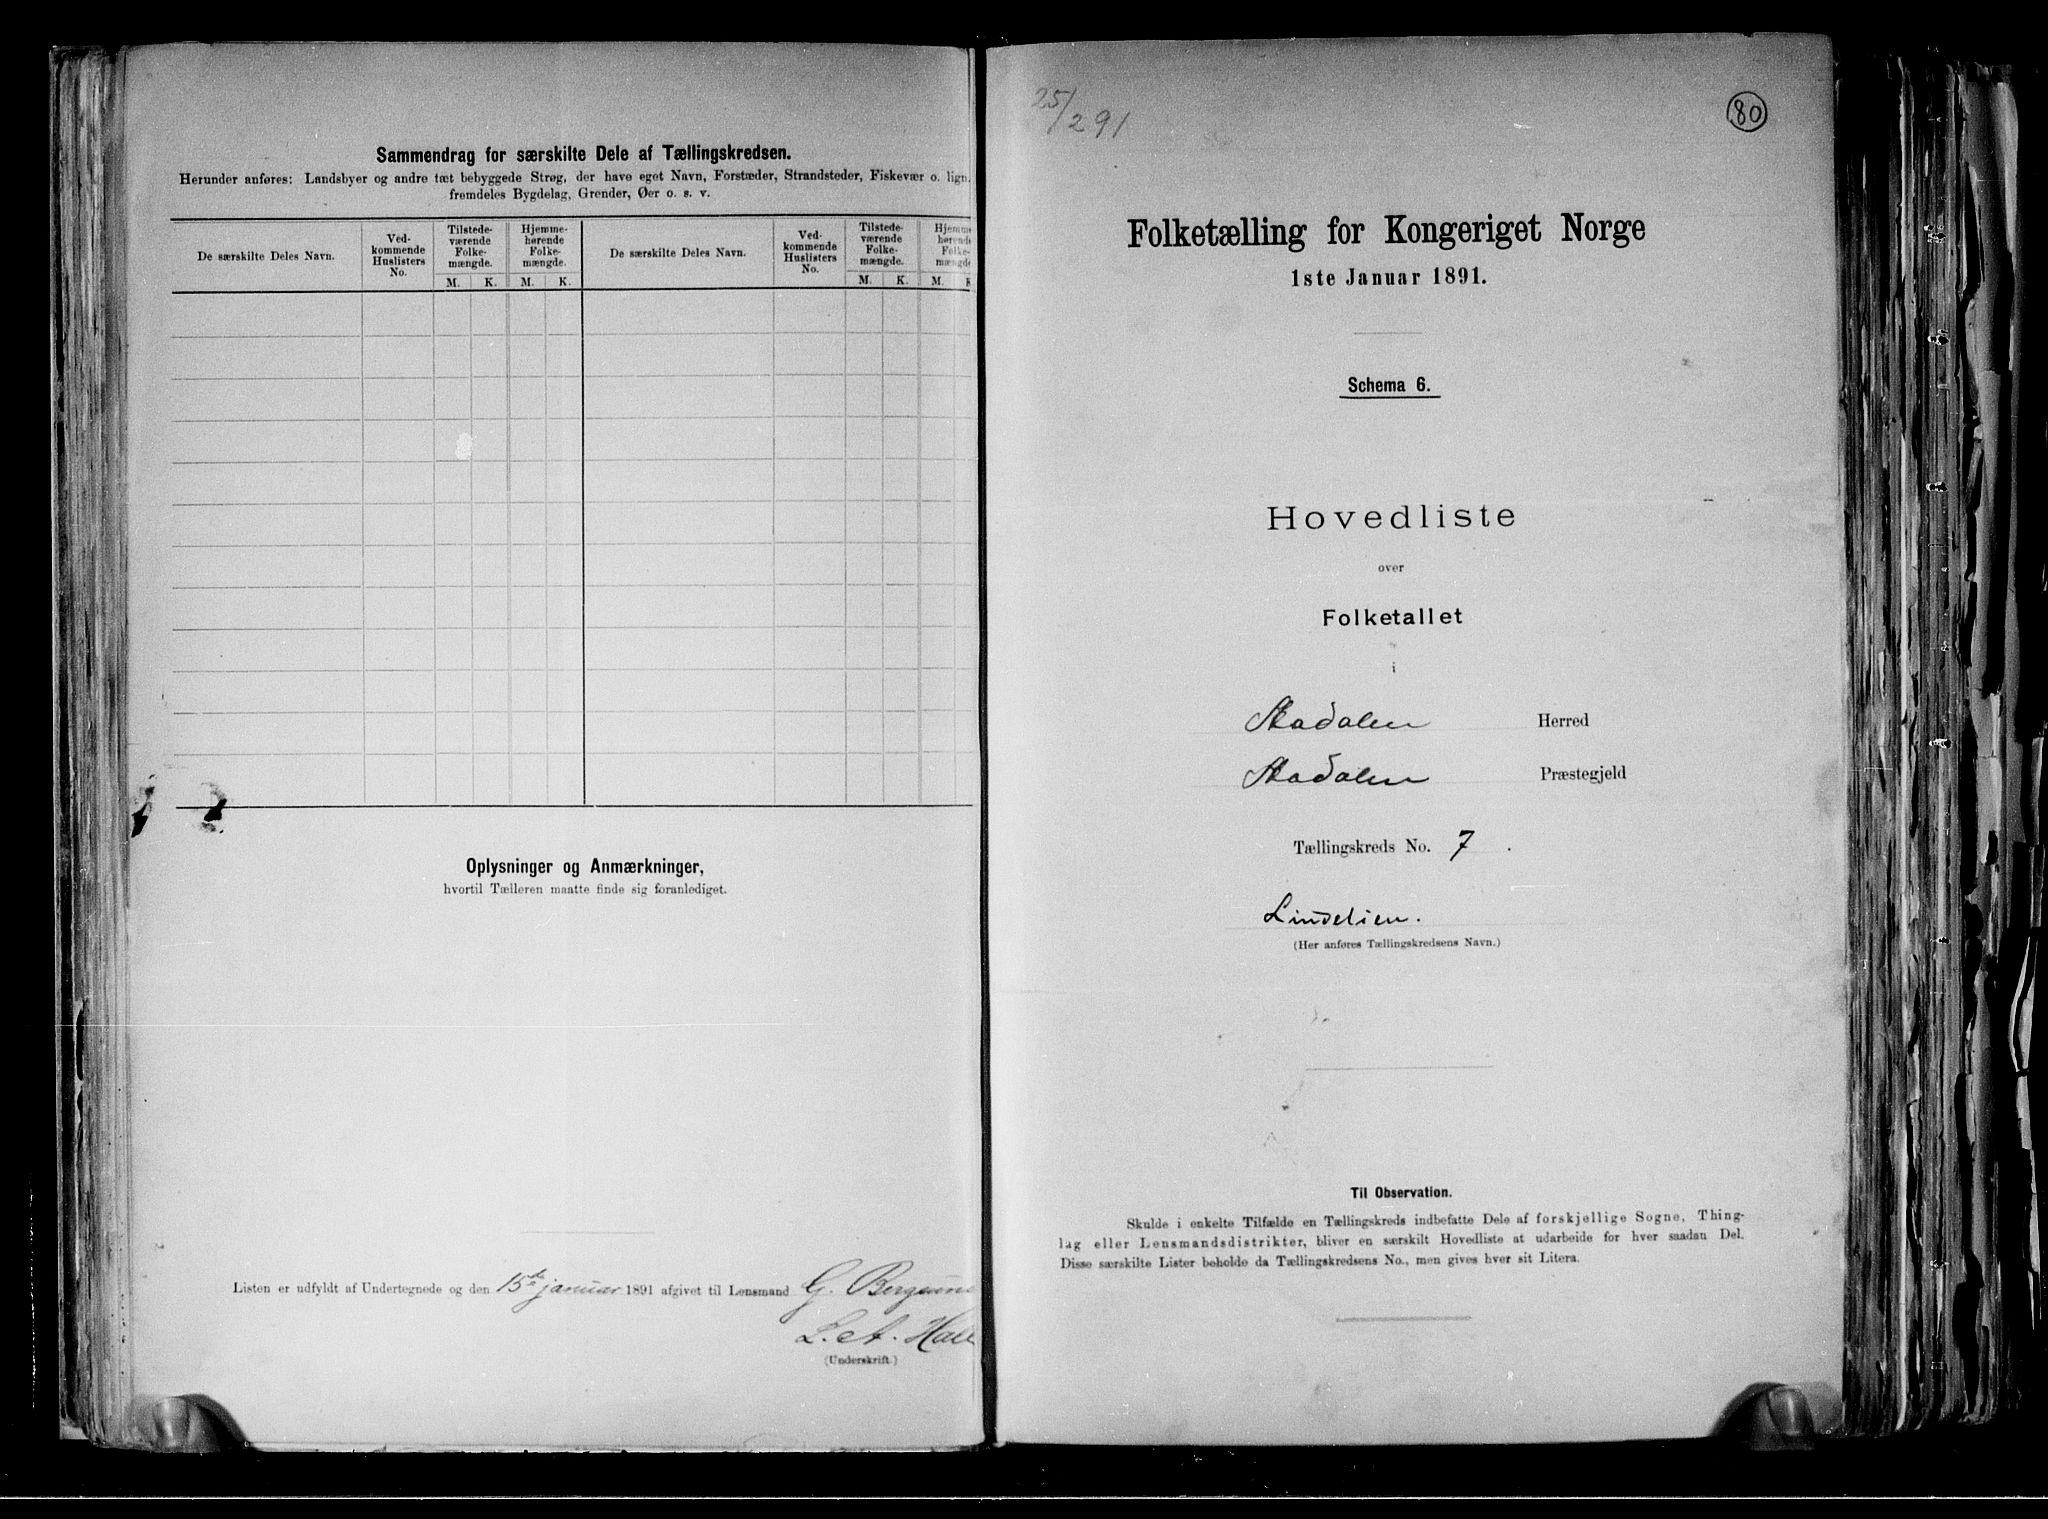 Sammendrag for særskilte Dele af Tællingskredsen.
Herunder anføres: Landsbyer og andre tæt bebyggede Strøg, der have eget Navn, Forstæder, Strandsteder, Fiskevær o. lign.
fremdeles Bygdelag, Grender, Øer o. s. v.
De særskilte Deles Navn.
Ved-
kommende
Huslisters
No.
Tilstede-
værende
Folke-
mængde.
Hjemme-
hørende
Folke-
mængde.
De særskilte Deles Navn.
Ved-
kommende
Huslisters
No.
Tilstede-
værende
Folke-
mængde.
Hjemme
hørende
Folke-
mængde
M. K. M. K. M. K. M. K
Oplysninger og Anmærkninger,
hvortil Tælleren maatte finde sig foranlediget.
Listen er udfyldt af Undertegnede og den 15de januar 1891 afgivet til Lensmand G. Bergsund
L. A. Hall
(Underskrift.)
25/
291
80
Folketælling for Kongeriget Norge
1ste Januar 1891.
Schema 6.
Hovedliste
over
Folketallet
i
Aadalen Herred
Aadalen Præstegjeld
Tællingskreds No. 7.
Lindelien.
(Her anføres Tællingskredsens Navn.)
Til Observation.
Skulde i enkelte Tilfælde en Tællingskreds indbefatte Dele af forskjellige Sogne, Thing-
lag eller Lensmandsdistrikter, bliver en særskilt Hovedliste at udarbeide for hver saadan Del.
Disse særskilte Lister beholde da Tællingskredsens No., men gives hver sit Litera.